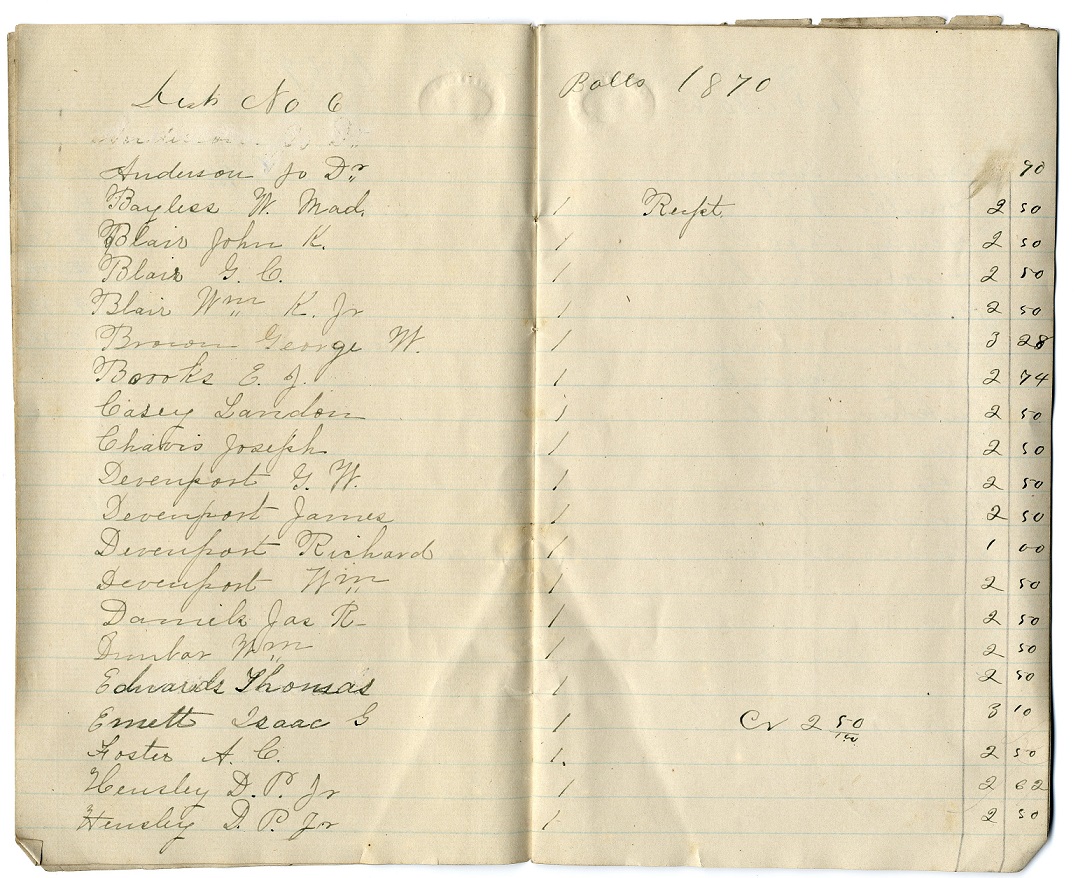 List No 6 Polls 1870
Anderson Jo Dr
Anderson Jo Dr 70
Bayless W. Mad. 1 Reipt. 2 50
Blair John K. 1 2 50
Blair G. C. 1 2 50
Blair Wm K. Jr 1 2 50
Brown George W. 1 3 28
Brooks E. J. 1 2 74
Casey Landon 1 2 50
Chavis Joseph 1 2 50
Devenport G. W. 1 2 50
Devenport James 1 2 50
Devenport Richard 1 1 00
Devenport Wm 1 2 50
Daniels Jas R- 1 2 50
Dunbar Wm 1 2 50
Edwards Thomas 1 2 50
Emett Isaac G 1 Cr 2 50/100 3 10
Foster A. C. 1. 2 50
Hensley D. P. Jr 1 2 62
Hensley D. P. Jr 1 2 50